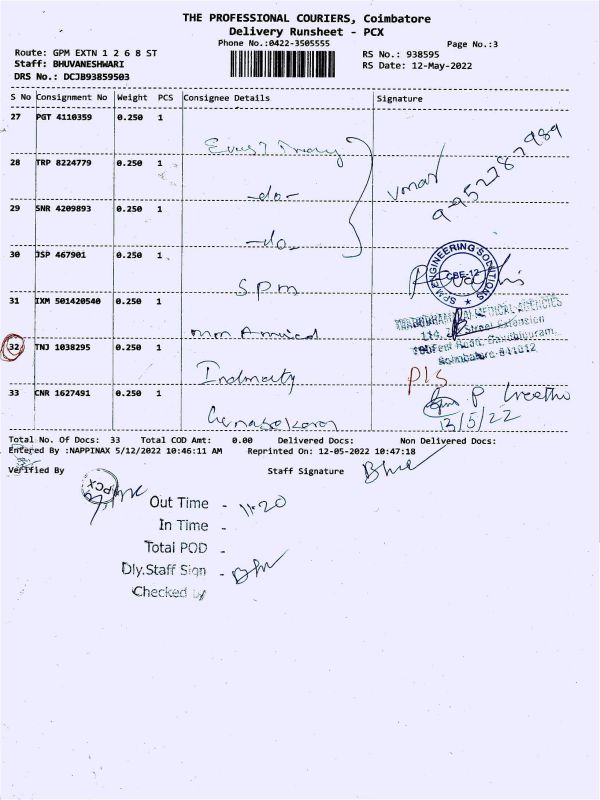 THE PROFESSIONAL COURIERS, Coimbatore
Delivery Runsheet - PCX
Phone No.:0422-3505555
Page No.:3
Route: GPM EXTN 1 2 6 8 ST
RS No.: 938595
Staff: BHUVANESHWARI
RS Date: 12-May-2022
DRS No.: DCJB93859503
S No Consignment No Weight PCS Consignee Details Signature
27 PGT 4110359 0.250 1
28 TRP 8224779 0.250 1 -do-
9952787989
29 SNR 4209893 0.250 1 -do-
30 JSP 467901 0.250 1 SPM
SPM ENGINEERING SOLUTIONS
CBE-12
31 IXM 501420540 0.250 1
MEDICAL AGENCIES
114, Street Extension
100Feet Road, Gandhipuram,
Coimbatore-641012
32 TNJ 1038295 0.250 1
33 CNR 1627491 0.250 1
13/5/22
Total No. Of Docs: 33 Total COD Amt: 0.00 Delivered Docs: Non Delivered Docs:
Entered By :NAPPINAX 5/12/2022 10:46:11 AM Reprinted On: 12-05-2022 10:47:18
Verified By Staff Signature
PCX
Out Time - 11.20
In Time -
Total POD -
Dly.Staff Sign -
Checked by